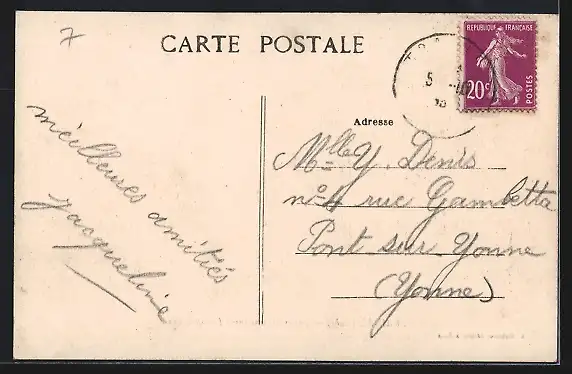 7
CARTE POSTALE
REPUBLIQUE FRANÇAISE
20c
POSTES
5
Adresse
Mlle Y. Denis
n°4 rue Gambetta
Pont sur Yonne
(Yonne)
meilleures amitiés
Jacqueline